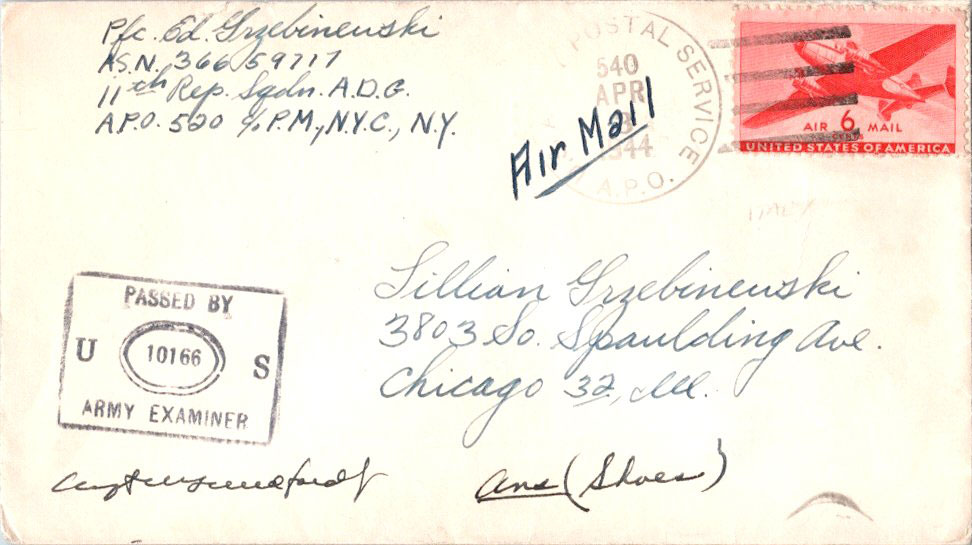 Pfc. Ed. Grzebinewski
ASN. 36659717
11th Rep. Sqdn. A.D.G.
A.P.O. 520 c/o P.M., N.Y.C., N.Y.
POSTAL SERVICE
540
APR
1944
A.P.O.
Air Mail
AIR 6 MAIL
CENTS
UNITED STATES OF AMERICA
Lillian Grzebinewski
3803 So. Spaulding Ave.
Chicago 32, Ill.
PASSED BY
U 10166 S
ARMY EXAMINER
Ans (Shoes)